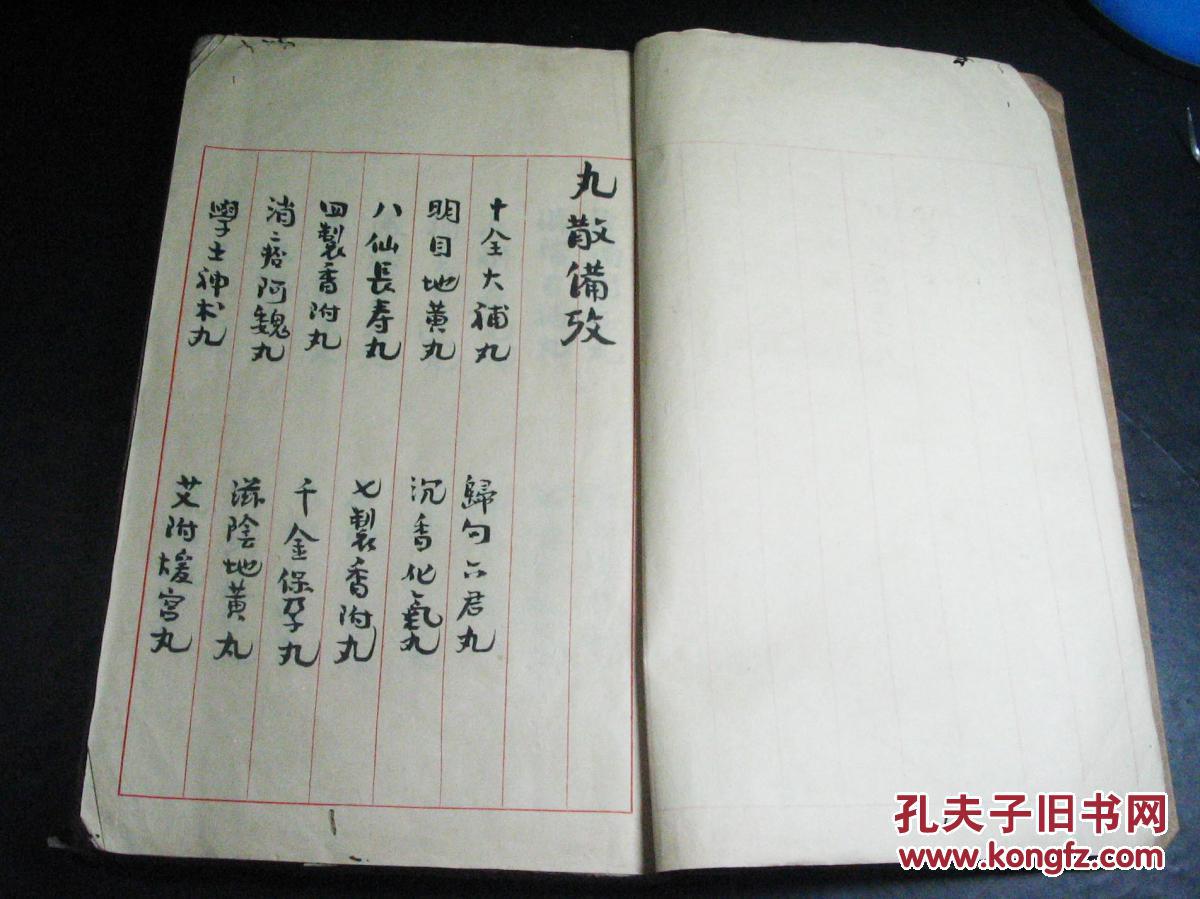 丸散備攷
十全大補丸
歸勺六君丸
明目地黄丸
沉香化氣丸
八仙長寿丸
七製香附丸
四製香附丸
千金保孕丸
消痞阿魏丸
滋陰地黄丸
學士神术丸
艾附煖宮丸
孔夫子旧书网
www.kongfz.com